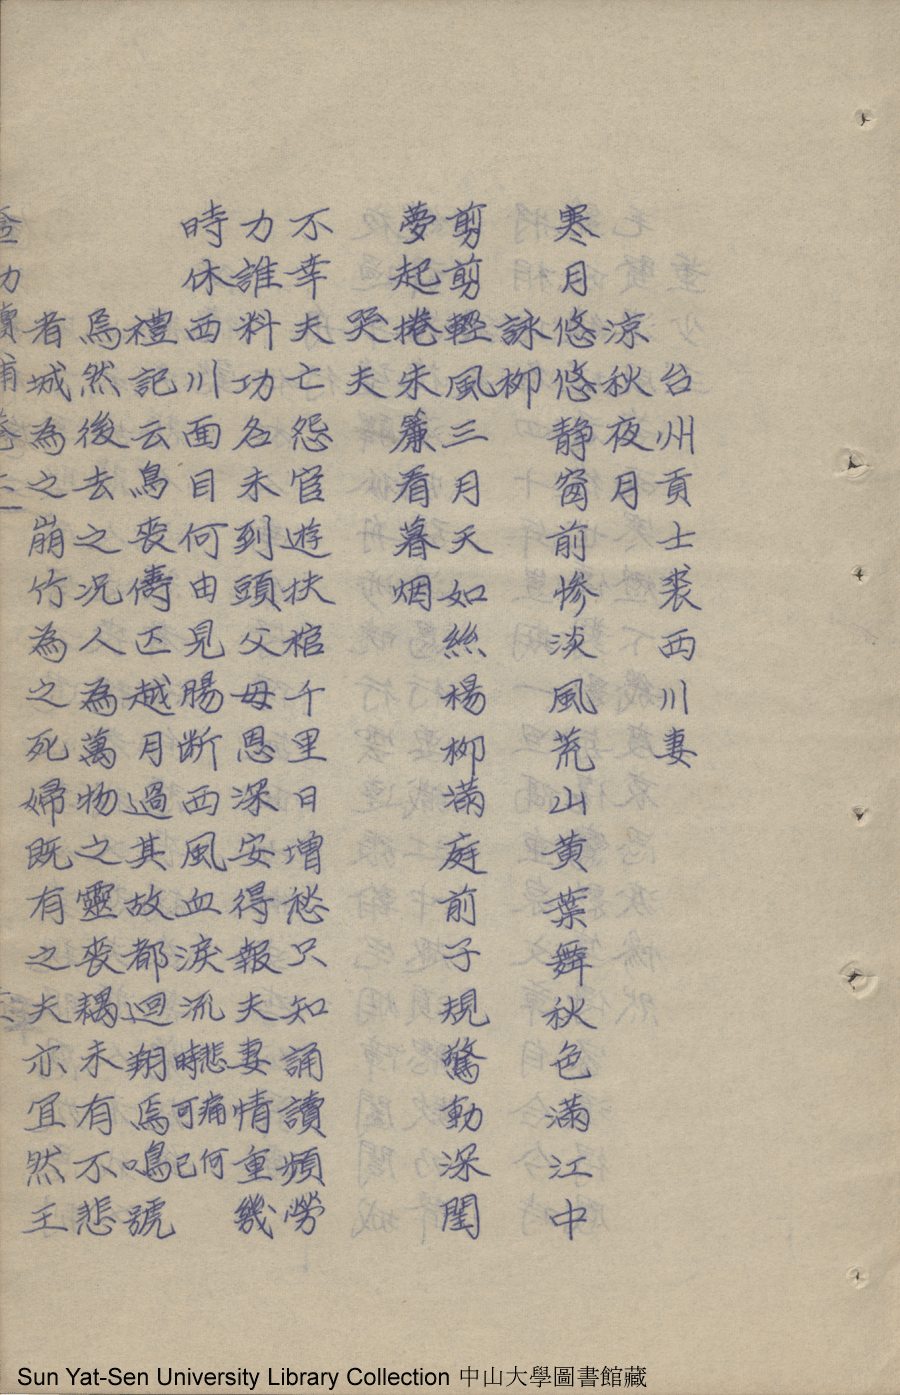 台州貢士裘西川妻
涼秋夜月
寒月悠悠静窗前惨淡風荒山黄葉舞秋色滿江中
詠柳
剪剪輕風三月天如絲楊柳滿庭前子規驚動深閨
夢起捲朱簾看暮烟
哭夫
不幸夫亡怨宦遊扶棺千里日增愁只知誦讀頻勞
力誰料功名未到頭父母恩深安得報夫妻情重幾
時休西川面目何由見腸断西風血淚流悲痛何時可已
禮記云鳥喪儔匹越月過其故都迴翔焉鳴號
焉然後去之况人為萬物之靈喪耦未有不悲
者城為之崩竹為之死婦既有之夫亦宜然王
Sun Yat-Sen University Library Collection 中山大學圖書館藏